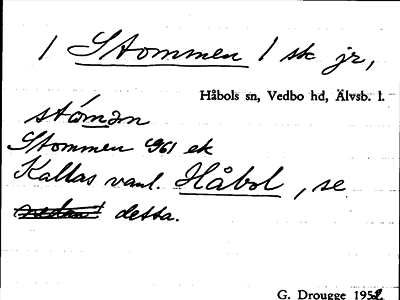 1 Stommen 1 sk jr,
Håbols sn, Vedbo hd, Älvsb. l.
stómən
Stommen 1961 ek
Kallas vanl. Håbol, se
detta.
G. Drougge 1952